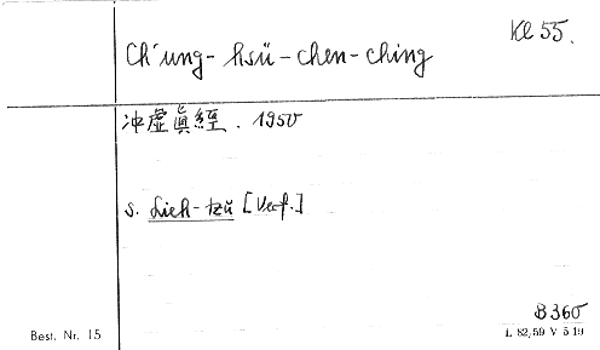 Kl 55.
Ch'ung-hsü-chen-ching
冲虛眞經. 1950
s. Lieh-tzŭ [Verf.]
B 360
Best. Nr. 15
L 82/59 V 5 19